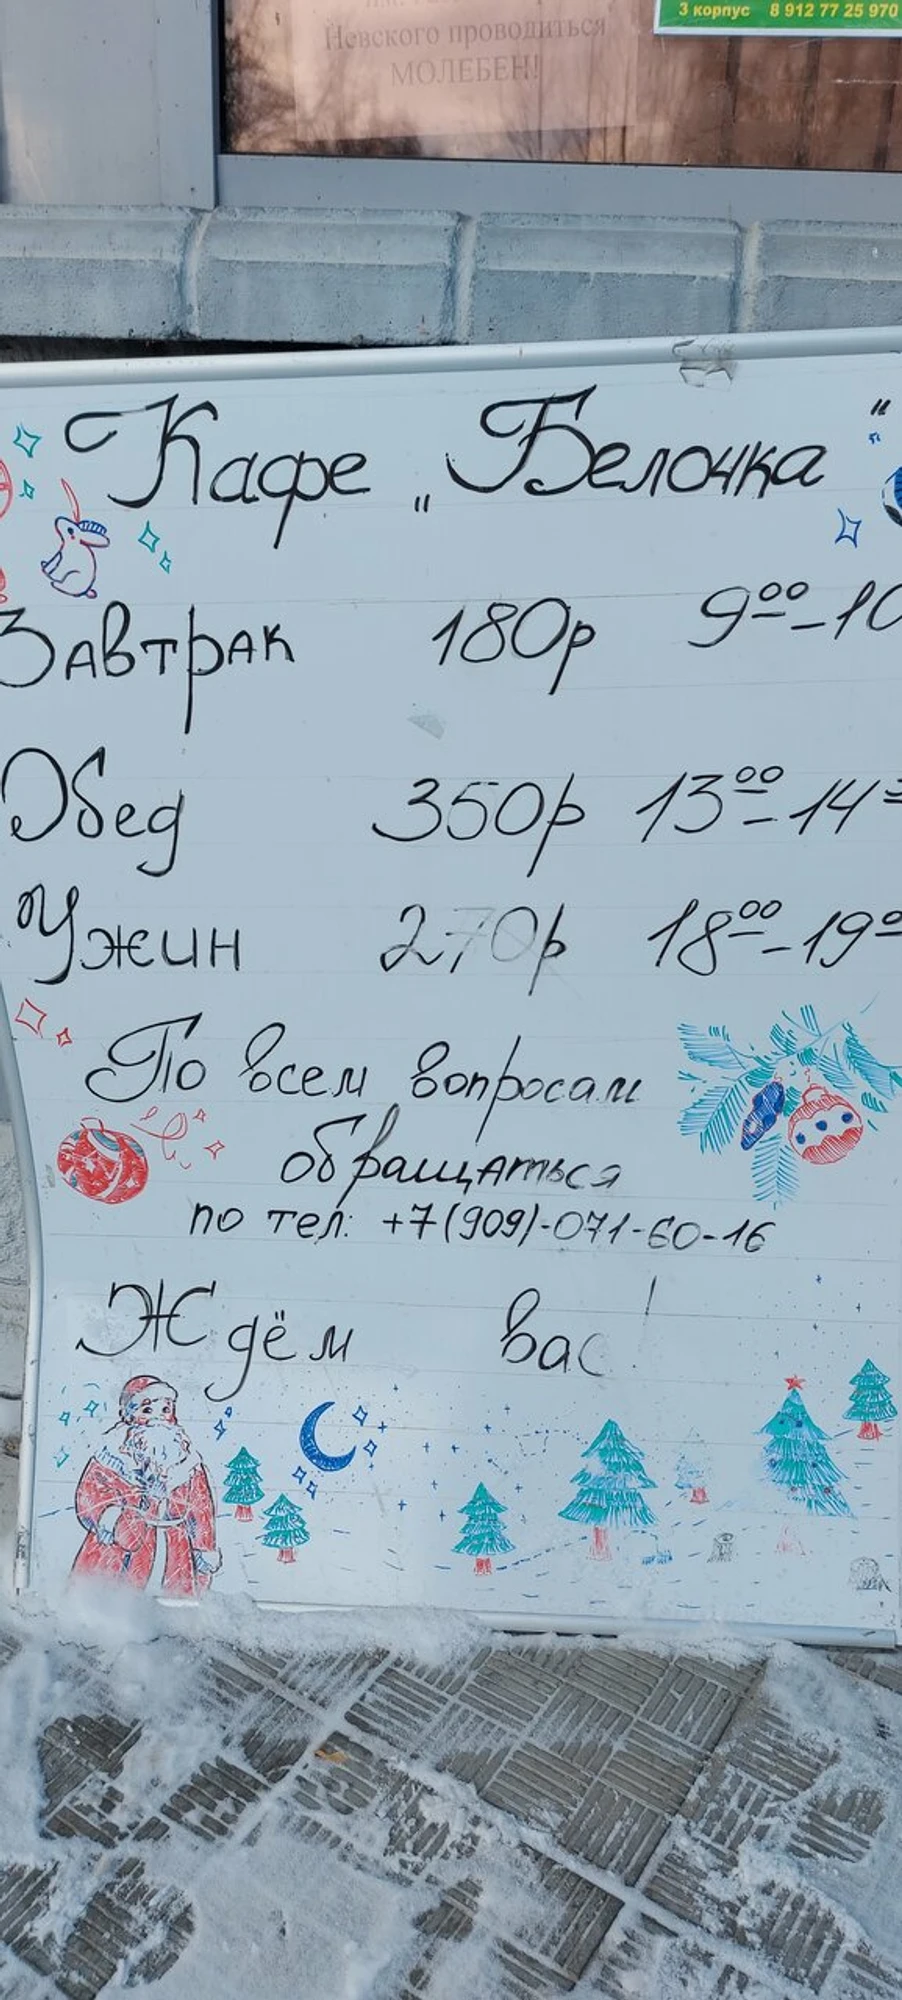 3 корпус 8 912 77 25 970
Невского проводиться
МОЛЕБЕН!
Кафе „Белочка"
Завтрак 180р 9⁰⁰-10
Обед 350р 13⁰⁰-14
Ужин 270р 18⁰⁰-19⁰
По всем вопросам
обращаться
по тел: +7(909)-071-60-16
Ждём вас!